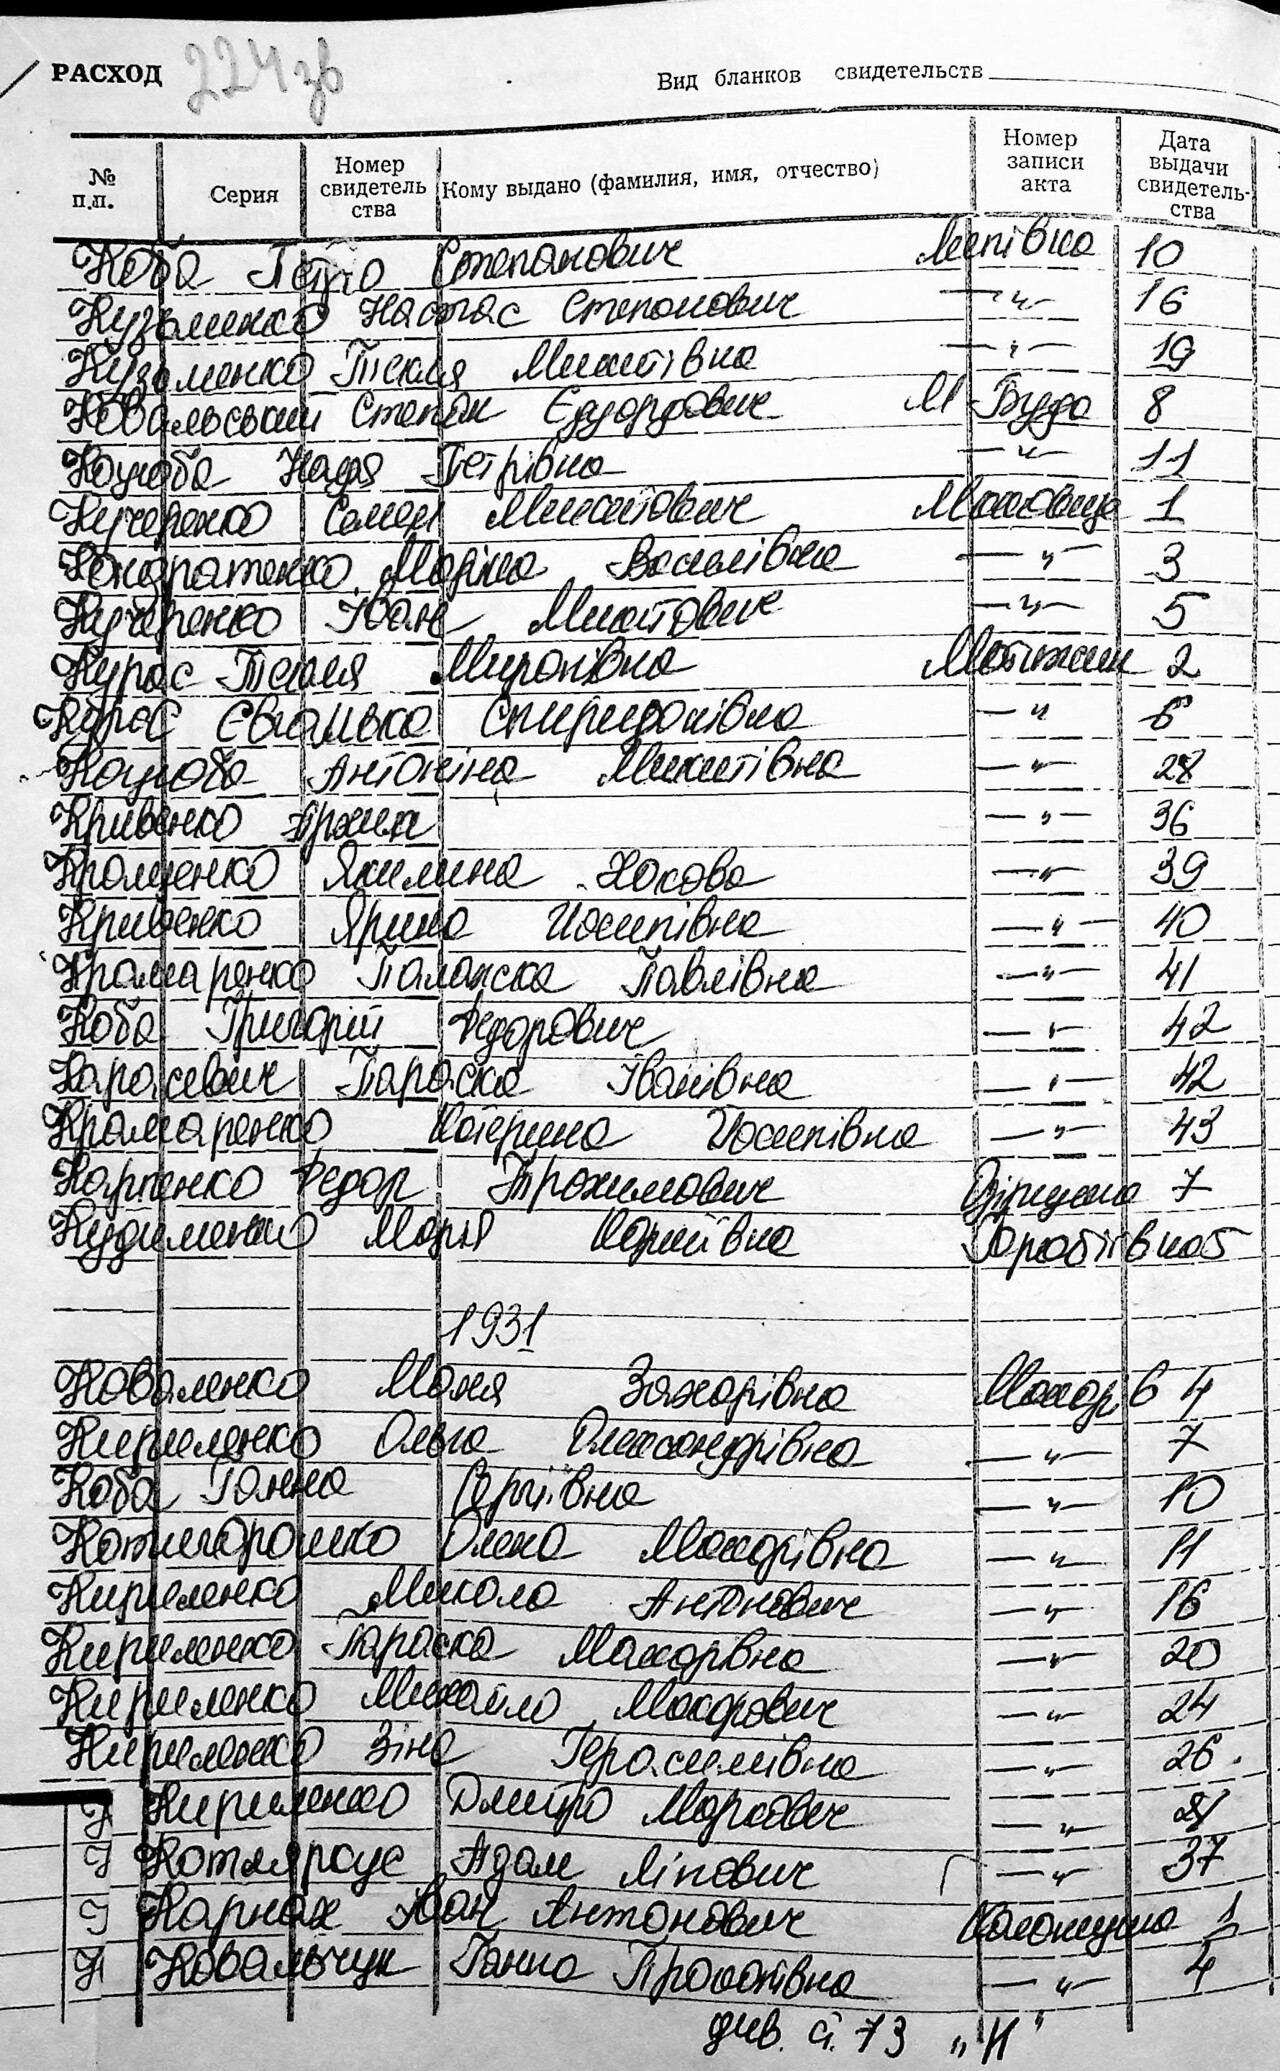 РАСХОД 224 зв
Вид бланков свидетельств
№ п.п. Серия Номер свидетельства Кому выдано (фамилия, имя, отчество) Номер записи акта Дата выдачи свидетельства
Коба Петро Степанович Липівка 10
Кузьменко Настас Степанович —"— 16
Кузьменко Текля Микитівна —"— 19
Ковальський Степан Єдуардович М Буда 8
Коцюба Надя Петрівна —"— 11
Кучеренко Семен Микитович Маковище 1
Кондратенко Маріна Василівна —"— 3
Кучеренко Іван Микитович —"— 5
Курас Текля Миронівна Мотижин 2
Курас Спиридонівна —"— 6
Коцюба Антоніна Микитівна —"— 28
Кривенко —"— 36
Якилина —"— 39
Кривенко Ярина Йосипівна —"— 40
Крамаренко Палажка Павлівна —"— 41
Коба Григорій Федорович —"— 42
Карасевич Параска Іванівна —"— 42
Крамаренко Катерина Йосипівна —"— 43
Карпенко Федор Трохимович 7
Марія 5
1931
Коваленко Маня Захарівна Макарів 4
Кириленко Ольга Олександрівна —"— 7
Коба Ганна Сергіївна —"— 10
Котигорошко Олена Макарівна —"— 11
Кириленко Микола Антонович —"— 16
Кириленко Параска Макарівна —"— 20
Кириленко Михайло Макарович —"— 24
Кириленко Зіна Герасимівна —"— 26
Кириленко Дмитро Маркович —"—
Котляроус Адам Ліпович —"— 37
Карнах Іван Антонович Колонщина 1
Ковальчук Ганна —"— 4
див. с. 73 „К"